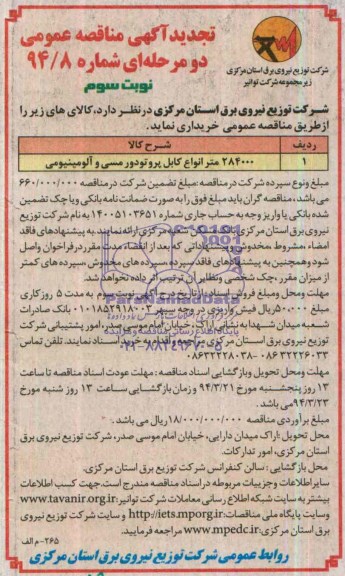 تجدیدآگهی مناقصه عمومی
دو مرحله‌ای شماره ۹۴/۸
نوبت سوم
شرکت توزیع نیروی برق استان مرکزی
زیر مجموعه شرکت توانیر
شرکت توزیع نیروی برق استان مرکزی در نظر دارد، کالای های زیر را
از طریق مناقصه عمومی خریداری نماید.
ردیف شرح کالا
۱ ۲۸۴۰۰۰ متر انواع کابل پروتودور مسی و آلومینیومی
مبلغ و نوع سپرده شرکت در مناقصه: مبلغ تضمین شرکت در مناقصه ۶۶۰/۰۰۰/۰۰۰
می باشد، مناقصه گران باید مبلغ فوق را به صورت ضمانت نامه بانکی و یا چک تضمین
شده بانکی یا واریز وجه به حساب جاری شماره ۱۴۰۰۵۱۰۳۶۵۱ به نام شرکت توزیع
نیروی برق استان مرکزی بانک مسکن شعبه مرکزی ارائه نمایند. به پیشنهادهای فاقد
امضاء، مشروط، مخدوش و پیشنهاداتی که بعد از انقضاء مدت مقرر در فراخوان واصل
شود و همچنین به پیشنهادهای فاقد سپرده، سپرده های مخدوش، سپرده های کمتر
از میزان مقرر، چک شخصی و نظایر آن ترتیب اثر داده نخواهد شد.
مهلت و محل و مبلغ فروش اسناد: از تاریخ درج آگهی نوبت سوم به مدت ۵ روز کاری
مبلغ ۵۰۰/۰۰۰ ریال فیش واریزی در وجه سپهر ۰۱۰۱۸۵۲۹۱۸۰۰۲ بانک صادرات
شعبه میدان شهدا به نشانی اراک، خیابان امام موسی صدر، امور پشتیبانی شرکت
توزیع نیروی برق استان مرکزی مراجعه و اقدام به خرید اسناد نمایند. تلفن تماس
۰۸۶۳۲۲۲۶۰۳۳- ۰۸۶۳۲۲۲۸۰۳۸
مهلت و محل تحویل و بازگشایی اسناد مناقصه: مهلت عودت اسناد مناقصه تا ساعت
۱۳ روز پنجشنبه مورخ ۹۴/۳/۲۱ و زمان بازگشایی ساعت ۱۳ روز شنبه مورخ
۹۴/۳/۲۳ می باشد.
مبلغ برآوردی مناقصه ۱۸/۰۰۰/۰۰۰/۰۰۰ ریال می باشد.
محل تحویل: اراک میدان دارایی، خیابان امام موسی صدر، شرکت توزیع نیروی برق
استان مرکزی، امور تدارکات.
محل بازگشایی: سالن کنفرانس شرکت توزیع برق استان مرکزی.
سایر اطلاعات و جزییات مربوطه در اسناد مناقصه مندرج است. جهت کسب اطلاعات
بیشتر به سایت شبکه اطلاع رسانی معاملات شرکت توانیر: www.tavanir.org.ir
وسایت پایگاه ملی مناقصات: http://iets.mporg.ir و سایت شرکت توزیع نیروی
برق استان مرکزی: www.mpedc.ir مراجعه فرمایید.
۲۶۵- م الف
روابط عمومی شرکت توزیع نیروی برق استان مرکزی